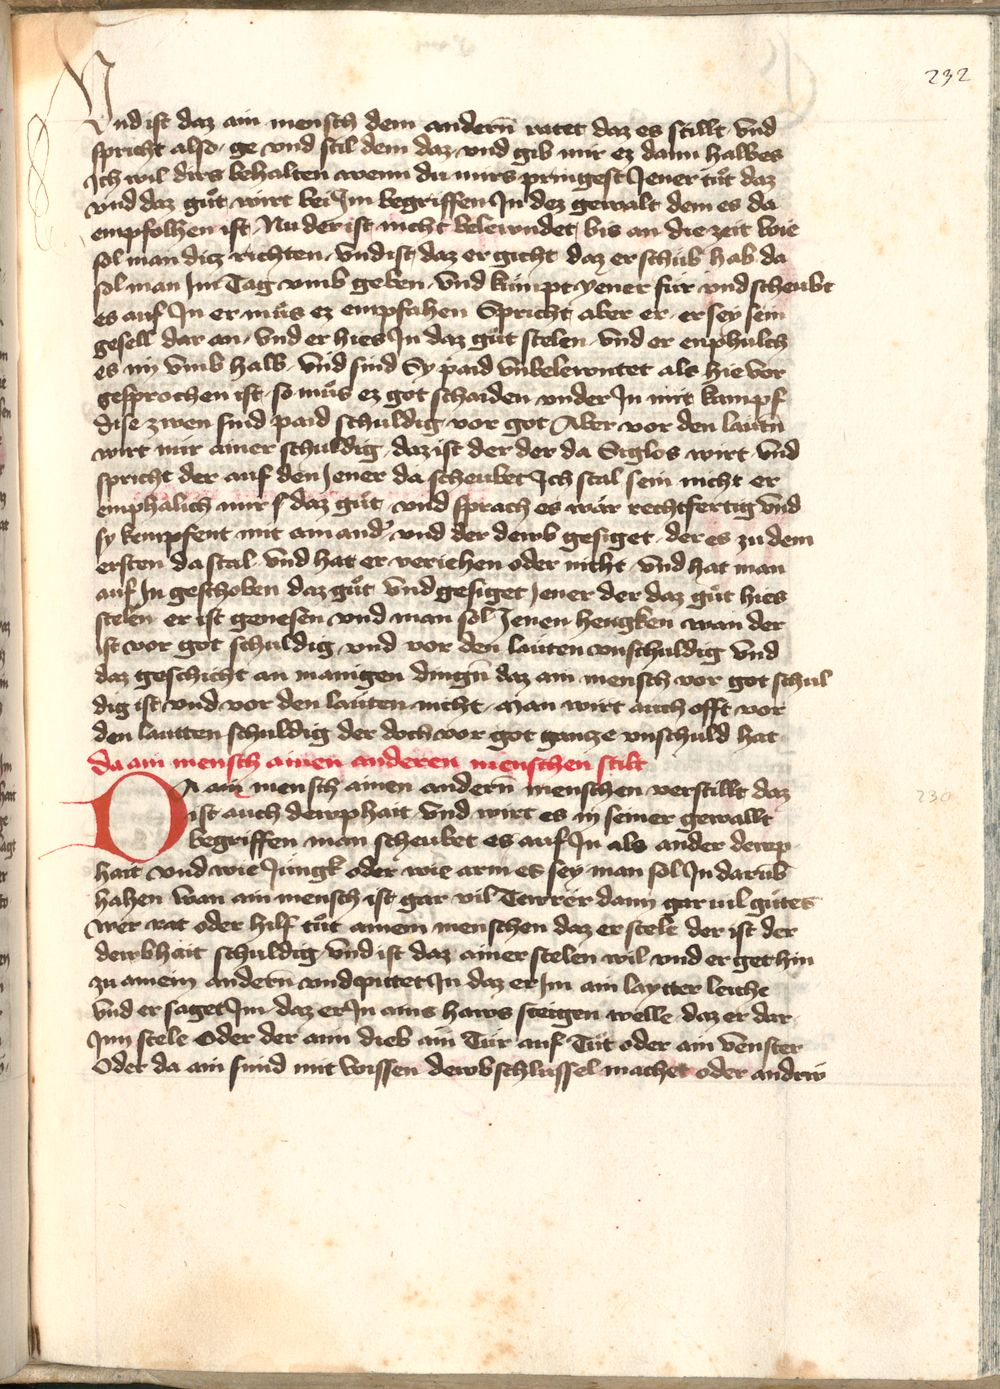 232
Vnd ist daz ain mensch dem andern̄ ratet daz es stillt vnd
spricht also ge vnd stil dem daz vnd gib mir ez dann halbes
Ich wil dirs behalten wenn du mirs pringest Jener tůt daz
vnd daz gůt wirt bei Im begriffen In dez gewalt dem es da
empfolhen ist Nu der ist nicht belewndet bis an die zeit wie
sol man diz richten vnd ist daz er gicht daz er schub hab da
sol man Im Tag vmb geben vnd kumpt yener fur vnd scheubt
es auf In er můs ez empfahen Spricht aber er er sey sein
gesell dar an vnd er hies In daz gůt stelen vnd er enphulch
es im vmb halb vnd sind Sy paid vnbelewntet als hie vor
gesprochen ist so můs ez got schaiden vnder In mit kampf
dise zwen sind paid schuldig vor got Aber vor den lautn̄
wirt nur ainer schuldig daz ist der der da Siglos wirt vnd
spricht der auf den Jener da scheubet Ich stal sein nicht er
emphalich mir daz gůt vnd sprach es wär rechtfertig vnd
sy kempfent mit ain and' vnd der dewb gesiget der es zu dem
ersten da stal vnd hat er veriehen oder nicht vnd hat man
auf In geschoben daz gůt vnd gesiget Jener der daz gůt hies
stelen er ist genesen vnd man sol Jenen hengken wan der
ist vor got schuldig vnd vor den lauten vnschuldig vnd
daz geschicht an manigen dingn̄ daz ain mensch vor got schul
dig ist vnd vor den lauten nicht Man wirt auch offt vor
den lautten schuldig der doch vor got gancze vnschuld hat
da ain mensch ainen anderen menschen stilt
DA ain mensch ainen andern̄ menschen verstillt daz
ist auch dewphait vnd wirt es in seiner gewallt
230
begriffen man scheubet es auf In als ander dewp
hait vnd wie Jungk oder wie arm es sey man sol In darūb
hahen wan ain mensch ist gar vil Tewrer dann gar vil gutes
wer rat oder hilf tůt ainem menschen daz er stele der ist der
dewbhait schuldig vnd ist daz ainer stelen wil vnd er get hin
zu ainem andern̄ vnd pittet In daz er Im ain laytter leiche
vnd er saget Im daz er In ains haws steigen welle daz er dar
Inn stele Oder der ainn dieb ain Tür auf Tůt oder ain venster
Oder da ain smid mit wissen dewbschlussel machet oder andrew